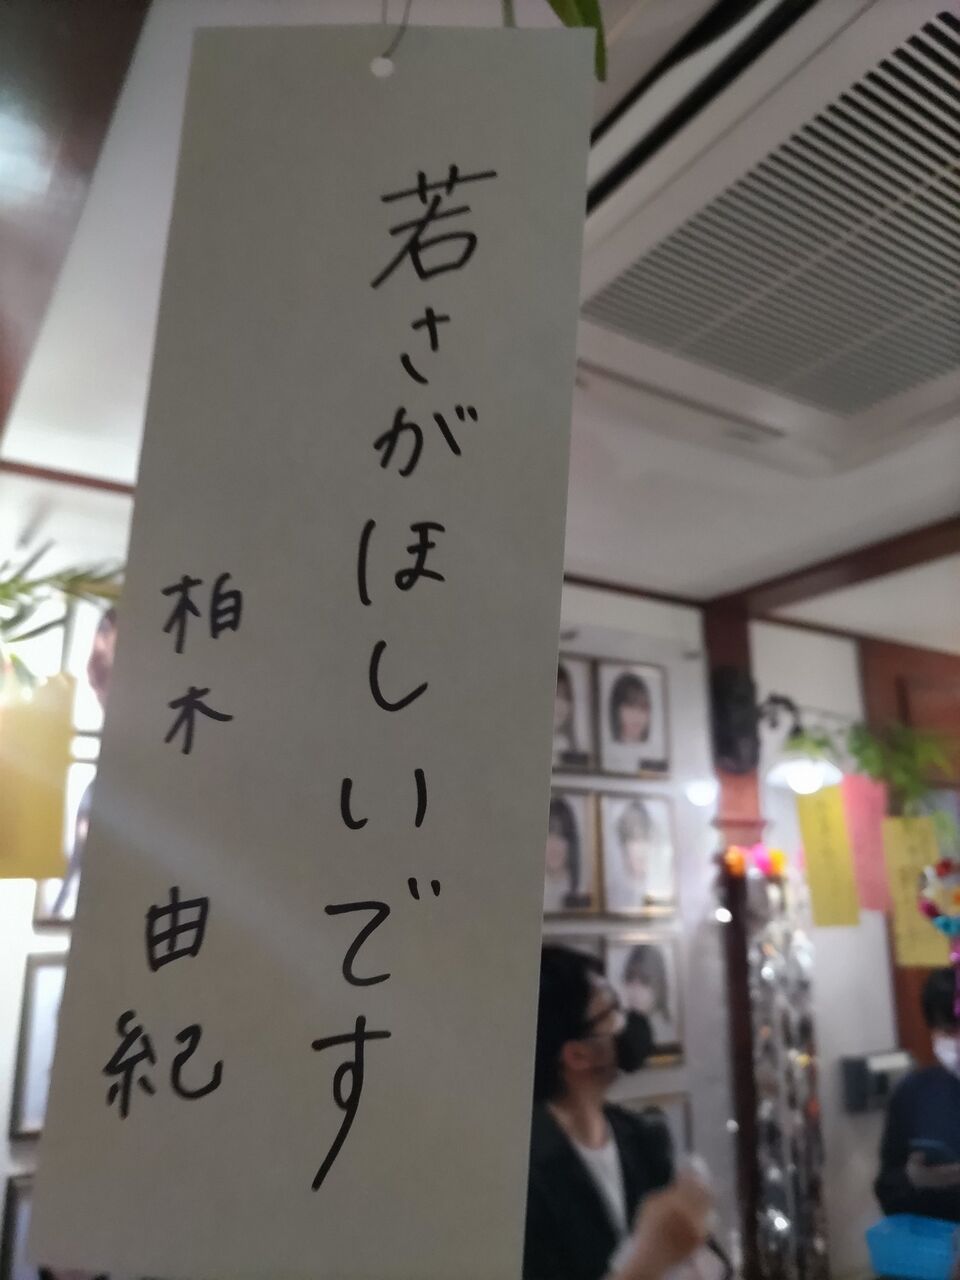 若さがほしいです
柏木由紀